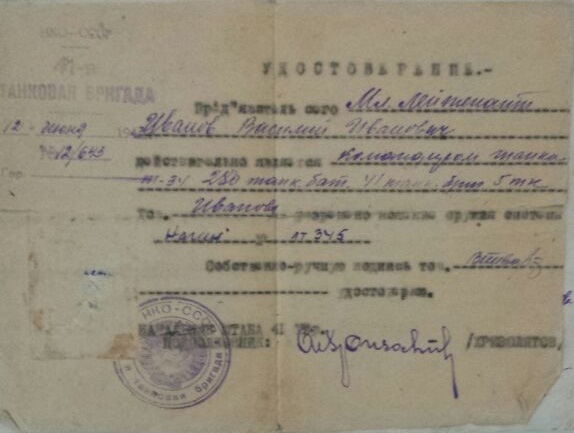 НКО-СССР
УДОСТОВЕРЕНИЕ.-
41-я
ТАНКОВАЯ БРИГАДА
Пред"явитель сего Мл. Лейтенант
12 - июня 194
Иванов Василий Иванович
№12/643
действительно является командиром танка
Т-34 280 танк. бат. 41 танк. бриг. 5 тк
Тов. Иванову разрешено ношение оружия системы
Наган № лт 345
Собственно-ручную подпись тов.
удостоверяю.
НАЧАЛЬНИК ШТАБА 41
ПОДПОЛКОВНИК: /КРИВОЛАТОВ/
НКО-СССР
танковая бригада